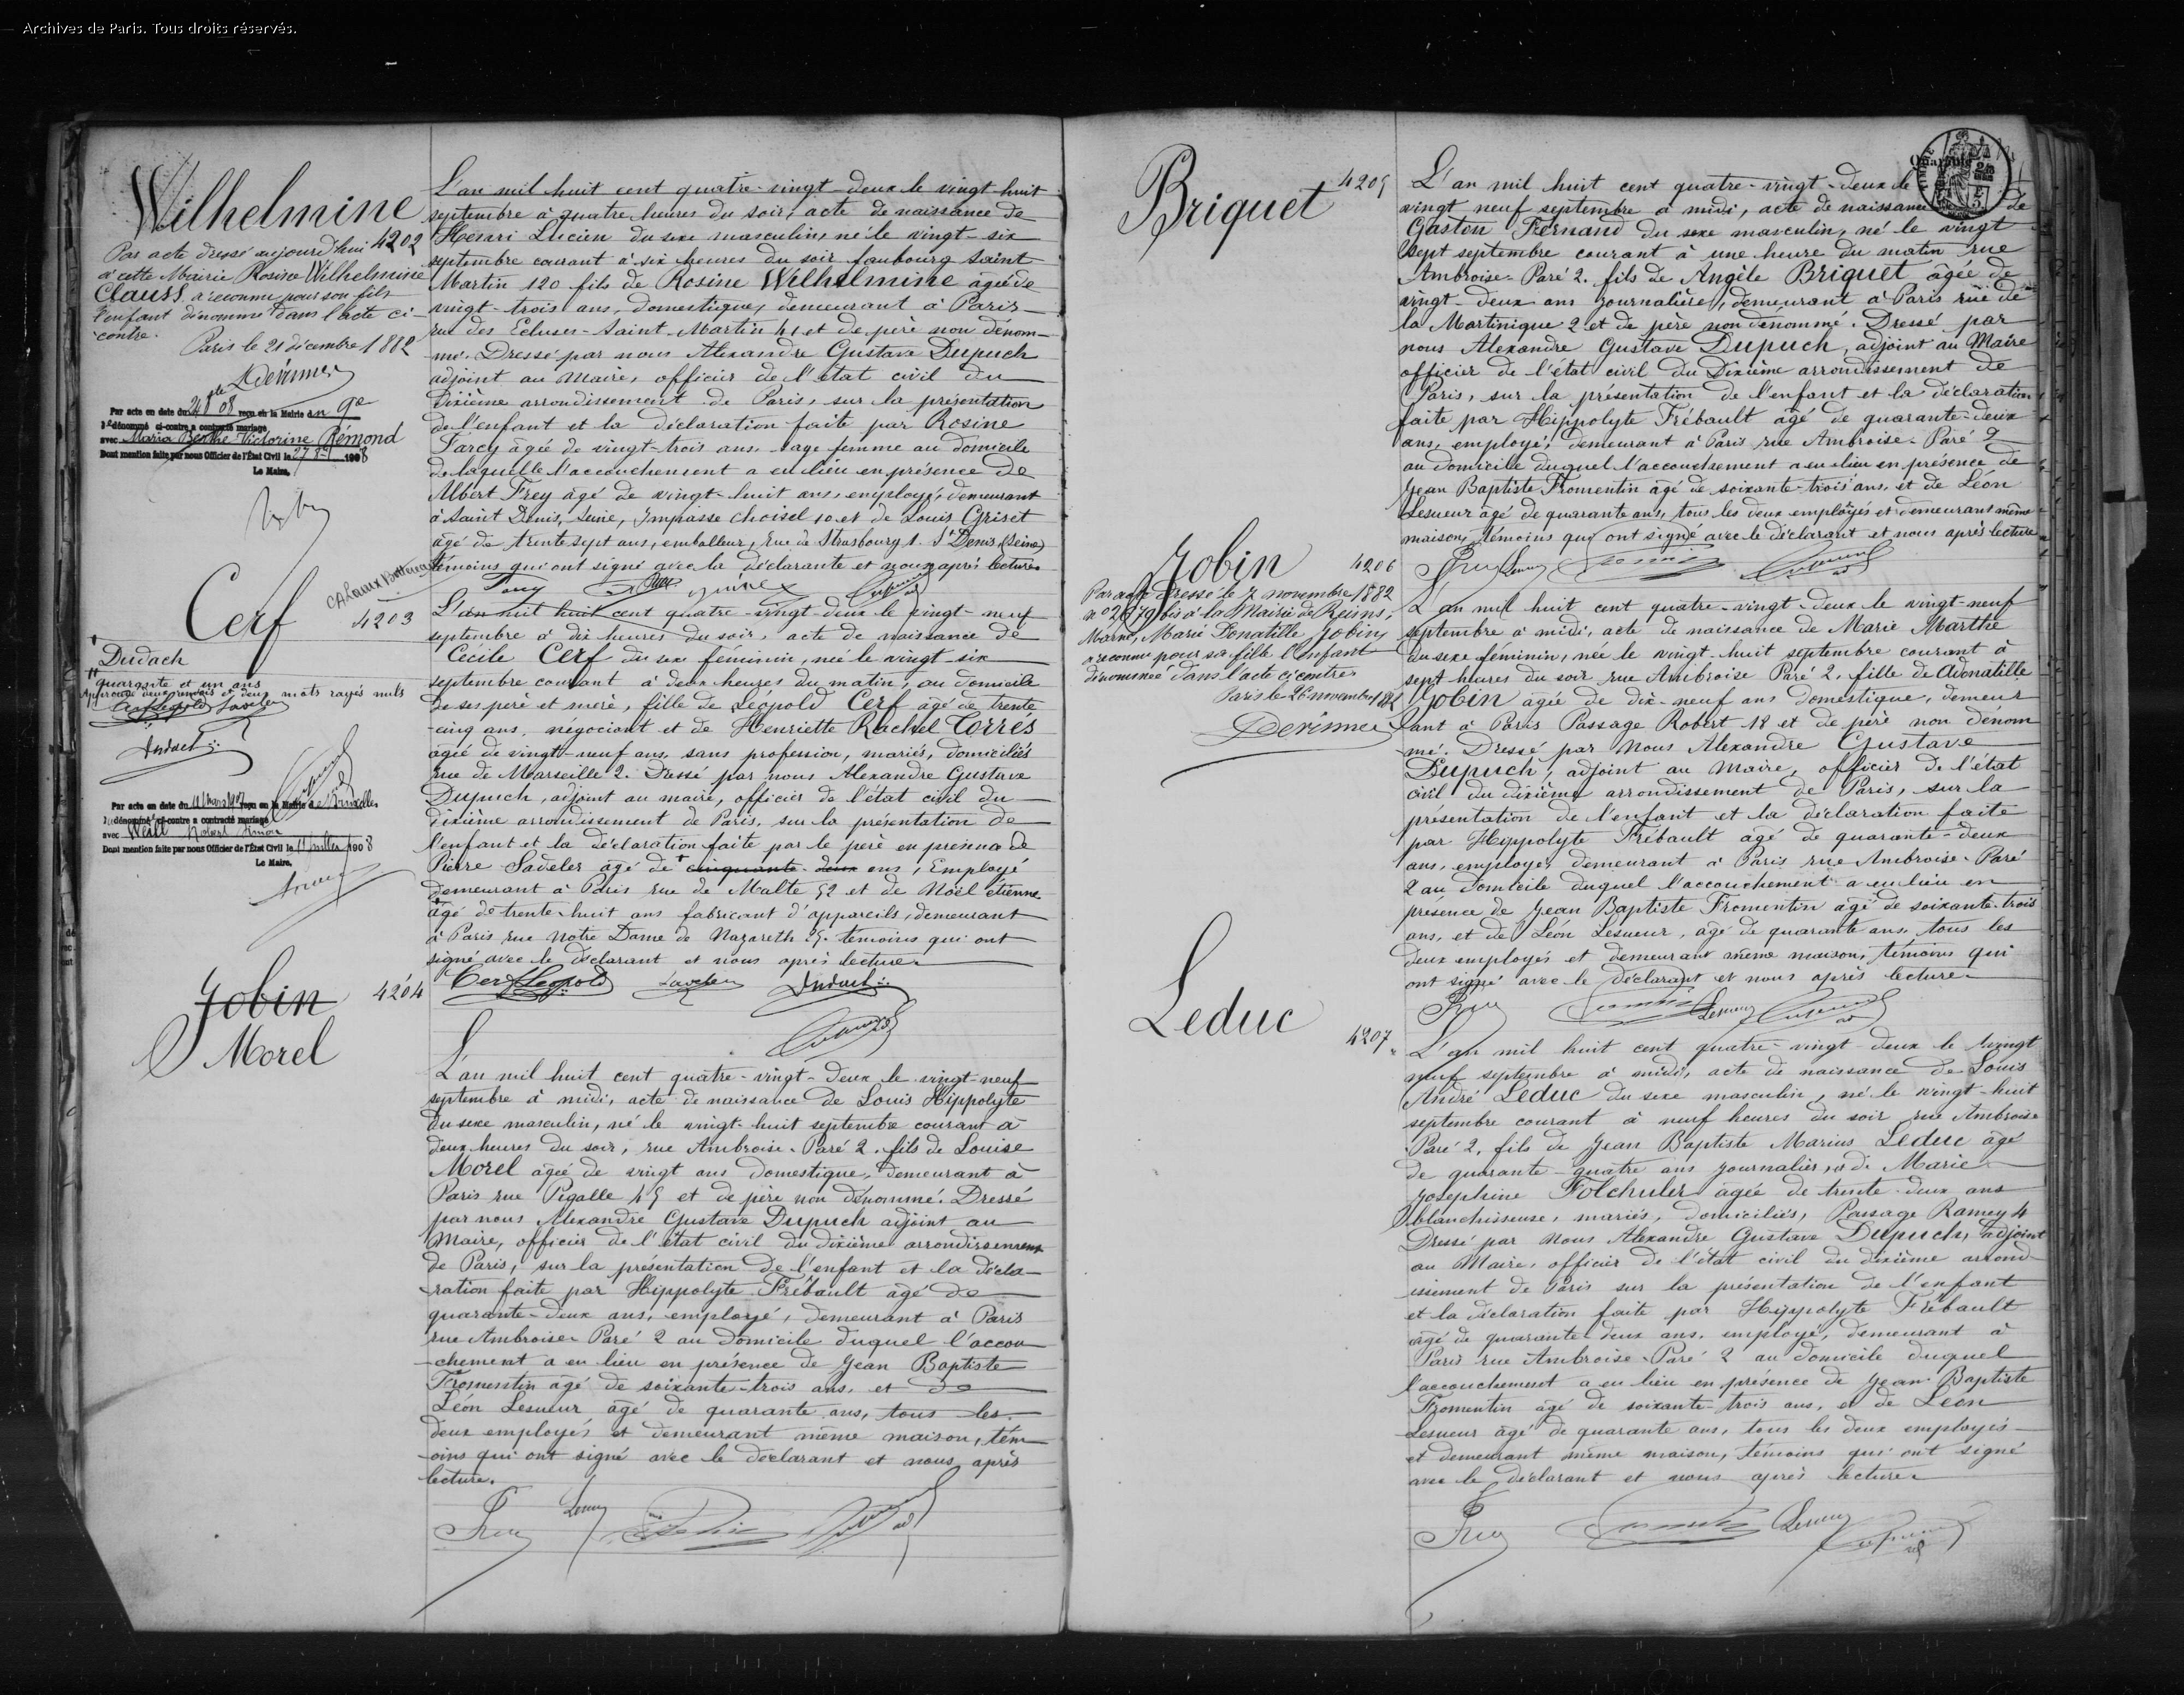 Archives de Paris. Tous droits réservés.
Wilhelmine
4202
Par acte dressé aujourd'hui
à cette Mairie Rosine Wilhelmine
Clauss a reconnu pour son fils
l'enfant dénommé dans l'acte ci-
contre.
Paris le 21 décembre 1882
Par acte en date du 24 8bre 08 reçu en la Mairie du 9e
le dénommé ci-contre a contracté mariage
avec Maria Berthe Victorine Rémond
Dont mention faite par nous Officier de l'État Civil le 27 8bre 1908
Le Maire,
L'an mil huit cent quatre-vingt-deux le vingt-huit
septembre à quatre heures du soir, acte de naissance de
Henri Lucien du sexe masculin, né le vingt-six
septembre courant à six heures du soir faubourg Saint
Martin 120 fils de Rosine Wilhelmine âgée de
vingt-trois ans, domestique, demeurant à Paris
rue des Ecluses-Saint-Martin 41 et de père non dénom-
mé. Dressé par nous Alexandre Gustave Dupuch
adjoint au Maire, officier de l'état civil du
Dixième arrondissement de Paris, sur la présentation
de l'enfant et la déclaration faite par Rosine
Farcy âgée de vingt-trois ans, sage femme au domicile
de laquelle l'accouchement a eu lieu en présence de
Albert Frey âgé de vingt-huit ans, employé, demeurant
à Saint Denis, Seine, Impasse Choisel 10 et de Louis Griset
âgé de trente sept ans, emballeur, rue de Strasbourg 1. St Denis (Seine)
témoins qui ont signé avec la déclarante et nous après lecture
Cerf
4203
Dudach
quarante et un ans
Approuvé deux renvois et deux mots rayés nuls
Cerf Léopold Sadeler
Dudach
Par acte en date du 11 Mars 1907 reçu en la Mairie de Bruxelles
la dénommée ci-contre a contracté mariage
avec Weill Robert Simon
Dont mention faite par nous Officier de l'État Civil le 11 Juillet 1908
Le Maire,
L'an mil huit cent quatre-vingt-deux le vingt-neuf
septembre à dix heures du soir, acte de naissance de
Cécile Cerf du sexe féminin, née le vingt-six
septembre courant à deux heures du matin, au domicile
de ses père et mère, fille de Léopold Cerf âgé de trente
cinq ans, négociant et de Henriette Rachel Torrès
âgée de vingt-neuf ans, sans profession, mariés, domiciliés
rue de Marseille 2. Dressé par nous Alexandre Gustave
Dupuch, adjoint au maire, officier de l'état civil du
dixième arrondissement de Paris, sur la présentation de
l'enfant et la déclaration faite par le père en présence de
Pierre Sadeler âgé de cinquante-deux ans, Employé
demeurant à Paris rue de Malte 52 et de Noël étienne
âgé de trente-huit ans fabricant d'appareils, demeurant
à Paris rue Notre Dame de Nazareth 25. témoins qui ont
signé avec le déclarant et nous après lecture
Cerf Léopold Sadeler Dudach
Jobin
4204
Morel
L'an mil huit cent quatre-vingt-deux le vingt-neuf
septembre à midi, acte de naissance de Louis Hippolyte
du sexe masculin, né le vingt-huit septembre courant à
deux heures du soir, rue Ambroise-Paré 2. fils de Louise
Morel âgée de vingt ans domestique, demeurant à
Paris rue Pigalle 45 et de père non dénommé. Dressé
par nous Alexandre Gustave Dupuch adjoint au
Maire, officier de l'état civil du dixième arrondissement
de Paris, sur la présentation de l'enfant et la décla-
ration faite par Hippolyte Frébault âgé de
quarante-deux ans, employé, demeurant à Paris
rue Ambroise-Paré 2 au domicile duquel l'accou-
chement a eu lieu en présence de Jean Baptiste
Fromentin âgé de soixante-trois ans, et de
Léon Lesueur âgé de quarante ans, tous les
deux employés et demeurant même maison, tém-
oins qui ont signé avec le déclarant et nous après
lecture.
Briquet
4205
L'an mil huit cent quatre-vingt-deux le
vingt neuf septembre à midi, acte de naissance de
Gaston Fernand du sexe masculin, né le vingt
sept septembre courant à une heure du matin rue
Ambroise-Paré 2. fils de Angèle Briquet âgée de
vingt-deux ans journalière, demeurant à Paris rue de
la Martinique 2 et de père non dénommé. Dressé par
nous Alexandre Gustave Dupuch, adjoint au Maire
officier de l'état civil du Dixième arrondissement de
Paris, sur la présentation de l'enfant et la déclaration
faite par Hippolyte Frébault âgé de quarante-deux
ans, employé, demeurant à Paris rue Ambroise-Paré 2
au domicile duquel l'accouchement a eu lieu en présence de
Jean Baptiste Fromentin âgé de soixante-trois ans, et de Léon
Lesueur âgé de quarante ans, tous les deux employés et demeurant même
maison, témoins qui ont signé avec le déclarant et nous après lecture
Jobin
4206
Par acte dressé le 7 novembre 1882
n° 2679 bis à la Mairie de Reims,
Marne, Marie Donatille Jobin
a reconnu pour sa fille l'enfant
dénommée dans l'acte ci contre
Paris le 26 novembre 1882
L'an mil huit cent quatre-vingt-deux le vingt-neuf
septembre à midi, acte de naissance de Marie Marthe
du sexe féminin, née le vingt-huit septembre courant à
sept heures du soir rue Ambroise Paré 2. fille de Adonatille
Jobin âgée de dix-neuf ans domestique, demeur
ant à Paris Passage Robert 12 et de père non dénom
mé. Dressé par Nous Alexandre Gustave
Dupuch, adjoint au Maire, officier de l'état
civil du dixième arrondissement de Paris, sur la
présentation de l'enfant et la déclaration faite
par Hippolyte Frébault âgé de quarante-deux
ans, employé, demeurant à Paris rue Ambroise-Paré
2 au domicile duquel l'accouchement a eu lieu en
présence de Jean Baptiste Fromentin âgé de soixante-trois
ans, et de Léon Lesueur, âgé de quarante ans, tous les
deux employés et demeurant même maison, témoins qui
ont signé avec le déclarant et nous après lecture
Leduc
4207
L'an mil huit cent quatre-vingt-deux le vingt
neuf septembre à midi, acte de naissance de Louis
André Leduc du sexe masculin, né le vingt-huit
septembre courant à neuf heures du soir rue Ambroise
Paré 2, fils de Jean Baptiste Marius Leduc âgé
de quarante-quatre ans journalier, et de Marie
Joséphine Folchuler âgée de trente-deux ans
blanchisseuse, mariés, domiciliés, Passage Ramey 4
Dressé par Nous Alexandre Gustave Dupuch, adjoint
au Maire, officier de l'état civil du dixième arrond-
issement de Paris sur la présentation de l'enfant
et la déclaration faite par Hippolyte Frébault
âgé de quarante-deux ans, employé, demeurant à
Paris rue Ambroise-Paré 2 au domicile duquel
l'accouchement a eu lieu en présence de Jean Baptiste
Fromentin âgé de soixante-trois ans, et de Léon
Lesueur âgé de quarante ans, tous les deux employés
et demeurant même maison, témoins qui ont signé
avec le déclarant et nous après lecture